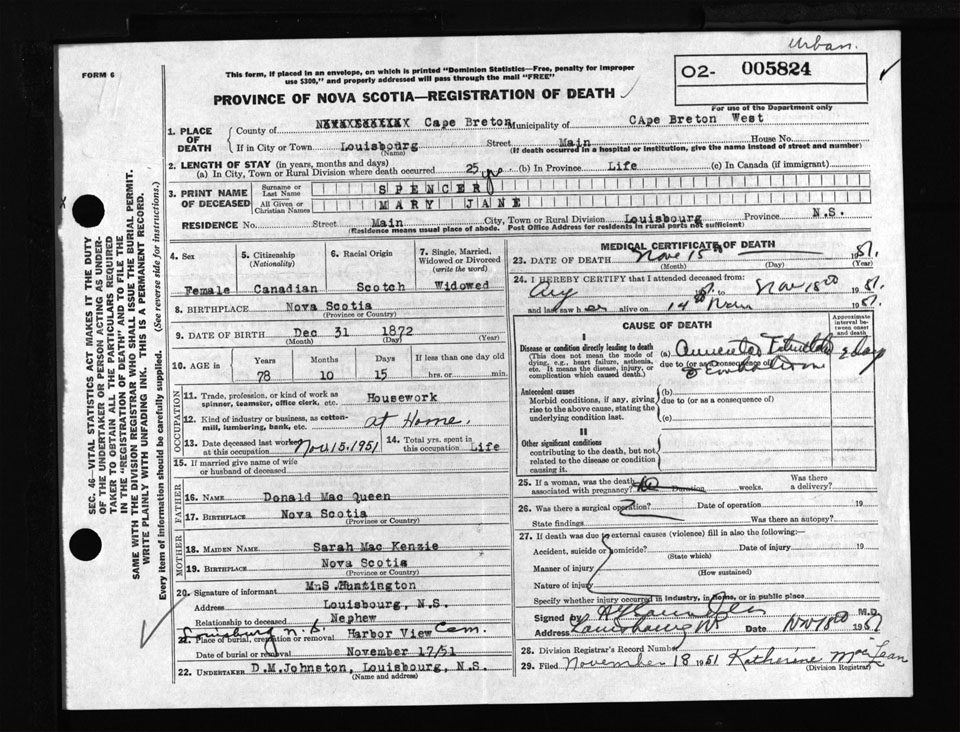 Urban.
FORM 6
This form, if placed in an envelope, on which is printed "Dominion Statistics—Free, penalty for improper
use $300," and properly addressed will pass through the mail "FREE"
O2- 005824
For use of the Department only
PROVINCE OF NOVA SCOTIA—REGISTRATION OF DEATH
1. PLACE OF DEATH
County of Cape Breton Municipality of CApe Breton West
If in City or Town Louisbourg (Name) Street Main House No.
(If death occurred in a hospital or institution, give the name instead of street and number)
2. LENGTH OF STAY (in years, months and days)
(a) In City, Town or Rural Division where death occurred 25 yrs (b) In Province Life (c) In Canada (if immigrant)
3. PRINT NAME OF DECEASED
Surname or Last Name SPENCER
All Given or Christian Names MARY JANE
RESIDENCE No. Street Main City, Town or Rural Division Louisbourg Province N.S.
(Residence means usual place of abode. Post Office Address for residents in rural parts not sufficient)
4. Sex Female
5. Citizenship (Nationality) Canadian
6. Racial Origin Scotch
7. Single, Married, Widowed or Divorced (write the word) Widowed
8. BIRTHPLACE Nova Scotia
(Province or Country)
9. DATE OF BIRTH Dec 31 1872
(Month) (Day) (Year)
10. AGE in Years Months Days If less than one day old
78 10 15 hrs. or min.
OCCUPATION
11. Trade, profession, or kind of work as spinner, teamster, office clerk, etc. Housework
12. Kind of industry or business, as cotton-mill, lumbering, bank, etc. at Home.
13. Date deceased last worked at this occupation Nov. 15. 1951
14. Total yrs. spent in this occupation Life
15. If married give name of wife or husband of deceased
FATHER
16. NAME Donald Mac Queen
17. BIRTHPLACE Nova Scotia
(Province or Country)
MOTHER
18. MAIDEN NAME Sarah Mac Kenzie
19. BIRTHPLACE Nova Scotia
(Province or Country)
20. Signature of informant M.S. Huntington
Address Louisbourg, N.S.
Relationship to deceased Nephew
Louisburg N.S.
21. Place of burial, cremation or removal Harbor View Cem.
Date of burial or removal November 17/51
22. UNDERTAKER D.M.Johnston, Louisbourg, N.S.
(Name and address)
MEDICAL CERTIFICATE OF DEATH
23. DATE OF DEATH Nov 15th 1951.
(Month) (Day) (Year)
24. I HEREBY CERTIFY that I attended deceased from:
Aug 51. to Nov 1951.
and last saw her alive on 14th Nov 1951.
CAUSE OF DEATH
Approximate interval between onset and death
I
Disease or condition directly leading to death (a)
(This does not mean the mode of dying, e.g., heart failure, asthenia, etc. It means the disease, injury, or complication which caused death.)
due to (or as a consequence of)
Antecedent causes (b)
Morbid conditions, if any, giving rise to the above cause, stating the underlying condition last.
due to (or as a consequence of)
(c)
II
Other significant conditions
contributing to the death, but not related to the disease or condition causing it.
25. If a woman, was the death associated with pregnancy? No Duration weeks. Was there a delivery?
26. Was there a surgical operation? Date of operation 19
State findings Was there an autopsy?
27. If death was due to external causes (violence) fill in also the following:—
Accident, suicide or homicide? Date of injury 19
(State which)
Manner of injury
(How sustained)
Nature of injury
Specify whether injury occurred in industry, in home, or in public place
Signed by M.D.
Address Louisbourg NS Date Nov 1951
28. Division Registrar's Record Number
29. Filed November 18 1951 Katherine MacLean
(Division Registrar)
SEC. 46—VITAL STATISTICS ACT MAKES IT THE DUTY
OF THE UNDERTAKER OR PERSON ACTING AS UNDER-
TAKER TO OBTAIN ALL THE PARTICULARS REQUIRED
IN THE "REGISTRATION OF DEATH" AND TO FILE THE
SAME WITH THE DIVISION REGISTRAR WHO SHALL ISSUE THE BURIAL PERMIT.
WRITE PLAINLY WITH UNFADING INK. THIS IS A PERMANENT RECORD.
Every item of information should be carefully supplied. (See reverse side for instructions.)